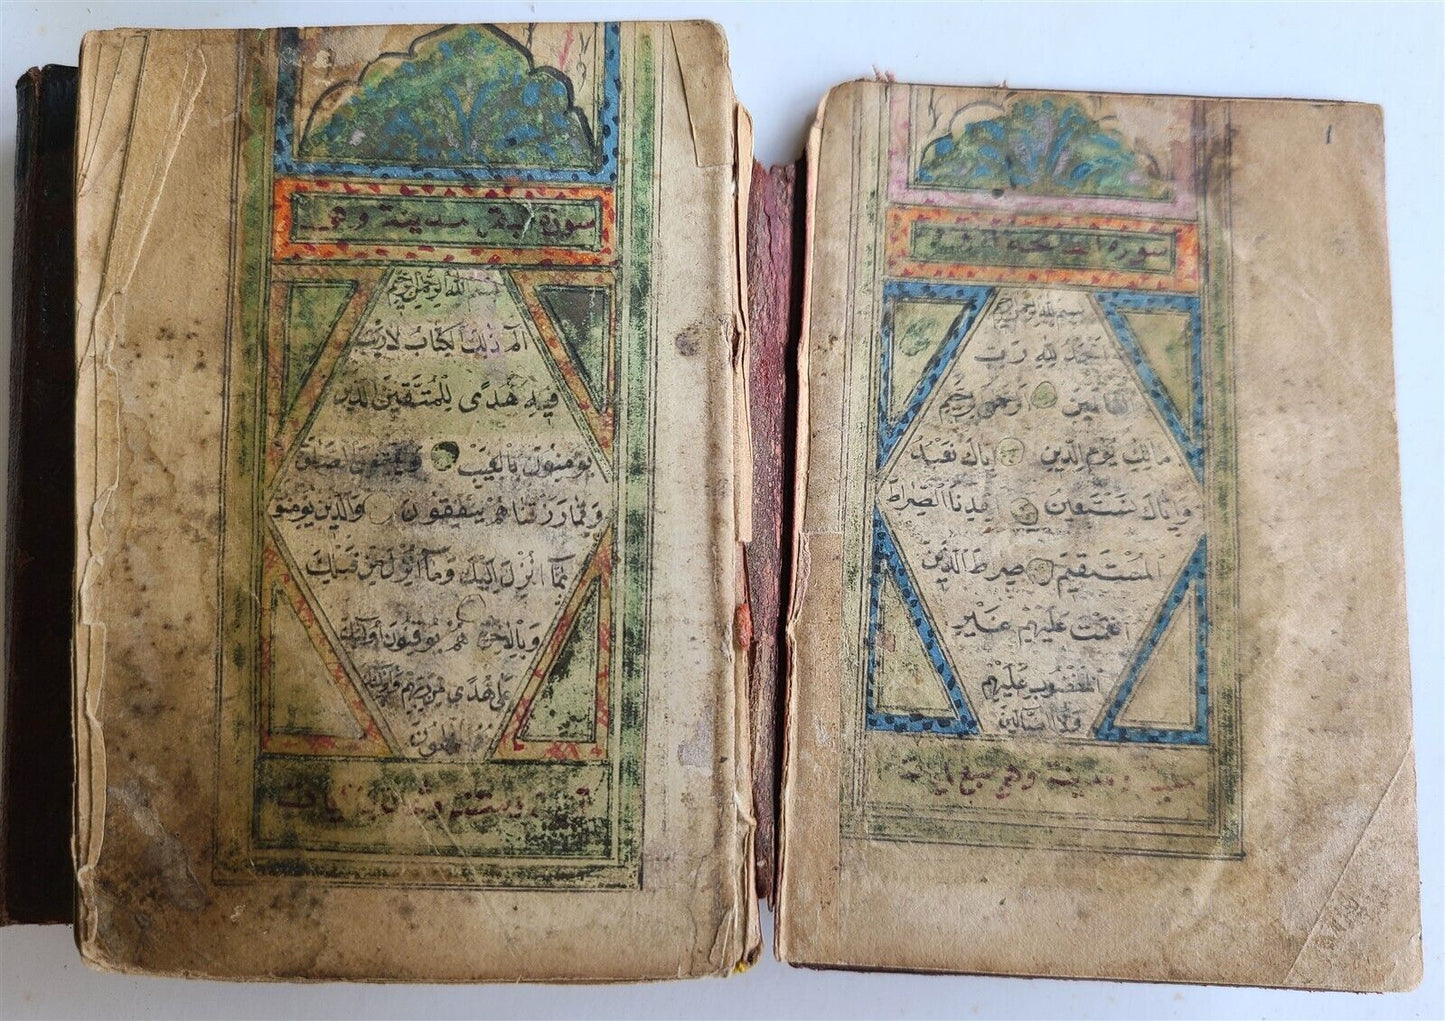 1
سورة الفاتحة
بسم الله الرحمن الرحيم
الحمد لله رب
العالمين الرحمن الرحيم
مالك يوم الدين اياك نعبد
واياك نستعين اهدنا الصراط
المستقيم صراط الذين
انعمت عليهم غير
المغضوب عليهم
ولا الضالين
مدينة وهي سبع
سورة البقرة مدينة وهي
بسم الله الرحمن الرحيم
الم ذلك الكتاب لا ريب
فيه هُدًى لِلْمُتَّقِينَ الذين
يومنون بالغيب ويقيمون الصلوة
ومما رزقناهم ينفقون والذين يومنو
بما انزل اليك وما انزل من قبلك
وبالاخرة هم يوقنون اولئك
على هدى من ربهم واولئك
هم المفلحون